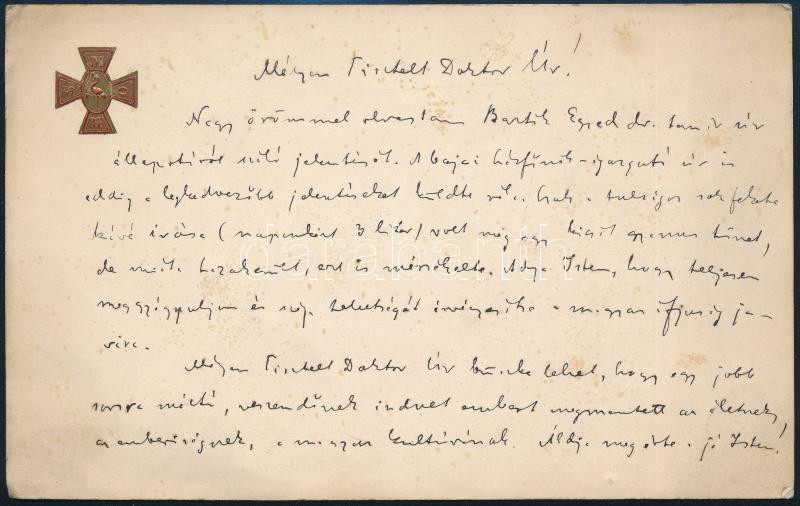 Mélyen Tisztelt Doktor Úr!
Nagy örömmel olvastam Bartik Egyed dr. tanár úr
állapotáról szóló jelentését. A bajai házfőnök-igazgató úr is
eddig a legkedvezőbb jelentéseket küldte róla. Csak a túlságos sok fekete
kávé ivása (naponként 3 liter) volt még egy kicsit gyanus tünet,
de mióta hazakerült, ezt is mérsékelte. Adja Isten, hogy teljesen
meggyógyuljon és szép tehetségét érvényesítse a magyar ifjuság ja-
vára.
Mélyen Tisztelt Doktor Úr büszke lehet, hogy egy jobb
sorsra méltó, veszendőnek indult embert megmentett az életnek,
az emberiségnek, a magyar kultúrának. Áldja meg érte a jó Isten!
darabanth